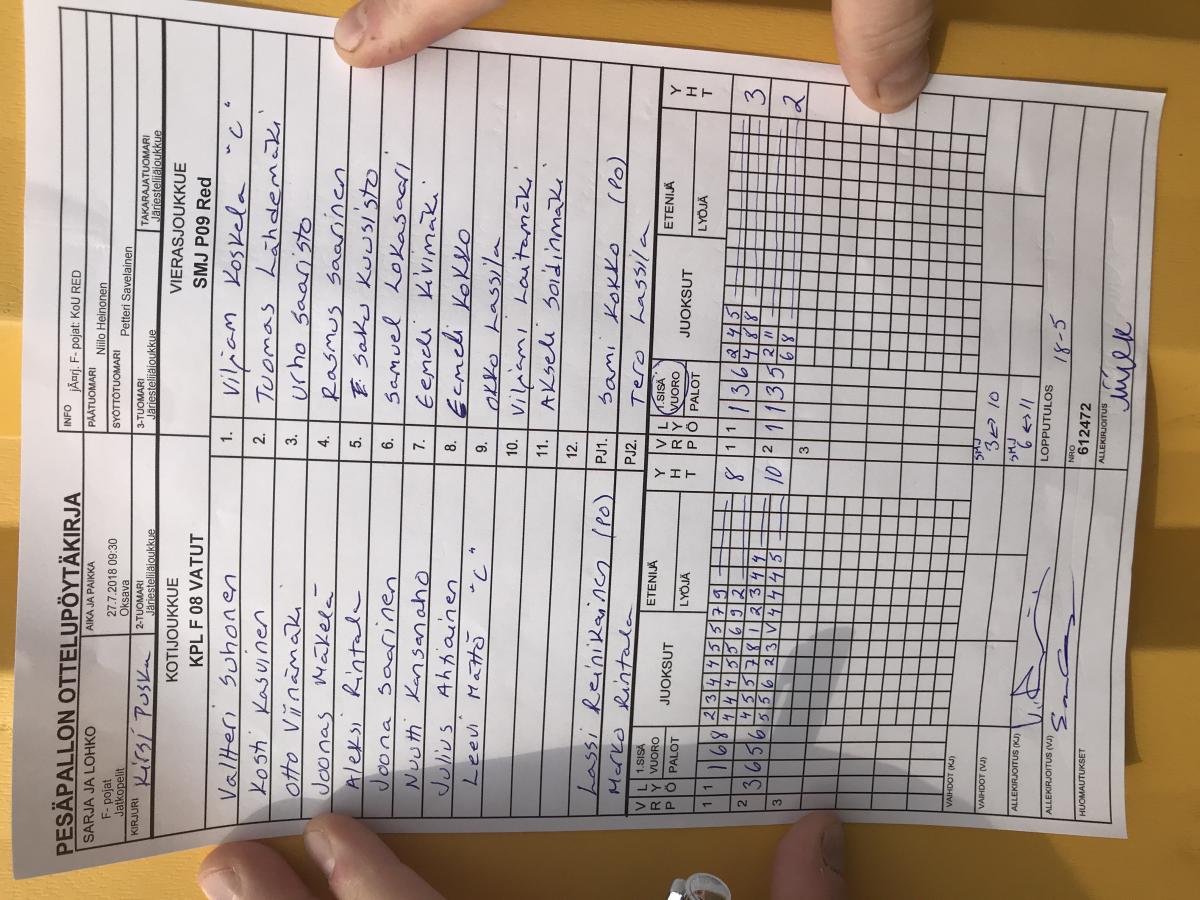 PESÄPALLON OTTELUPÖYTÄKIRJA
SARJA JA LOHKO
F- pojat
Jatkopelit
AIKA JA PAIKKA
27.7.2018 09:30
Oksava
INFO jÃ¤rj. F- pojat: KoU RED
PÄÄTUOMARI Niilo Heinonen
SYÖTTÖTUOMARI Petteri Savelainen
KIRJURI Kirsi Puska
2-TUOMARI
Järjestelijäjoukkue
3-TUOMARI
Järjestelijäjoukkue
TAKARAJATUOMARI
Järjestelijäjoukkue
KOTIJOUKKUE
KPL F 08 VATUT
VIERASJOUKKUE
SMJ P09 Red
Valtteri Suhonen 1. Viljam Koskela "C"
Kosti Kasvinen 2. Tuomas Lähdemäki
Otto Viinamäki 3. Urho Saaristo
Joonas Mäkelä 4. Rasmus Saarinen
Aleksi Rintala 5. Saku Kuusisto
Joona Saarinen 6. Samuel Kokasaari
Nuutti Kansanaho 7. Eemeli Kivimäki
Julius Ahtiainen 8. Eemeli Kokko
Leevi Mättö "C" 9. Okko Lassila
10. Viljami Laitamäki
11. Akseli Soidinmäki
12.
Lassi Reinikainen (PO) PJ1. Sami Kokko (PO)
Marko Rintala PJ2. Tero Lassila
V L
R Y
P Ö
1.SISÄ
VUORO
PALOT
JUOKSUT
ETENIJÄ
LYÖJÄ
Y
H
T
V L
R Y
P Ö
1.SISÄ
VUORO
PALOT
JUOKSUT
ETENIJÄ
LYÖJÄ
Y
H
T
1 1 1 6 8 2 3 4 4 5 5 7 9 8 1 1 1 3 6 2 4 5 3
4 4 4 5 5 6 9 2 4 8 8
2 3 6 5 6 4 5 5 7 8 1 2 3 4 4 10 2 1 1 3 5 2 11 2
5 5 6 2 3 V 4 4 4 5 6 8
3 3
VAIHDOT (KJ)
SMJ
3 <=> 10
VAIHDOT (VJ)
SMJ
6 <=> 11
ALLEKIRJOITUS (KJ)
LOPPUTULOS 18-5
ALLEKIRJOITUS (VJ)
NRO
612472
HUOMAUTUKSET
ALLEKIRJOITUS